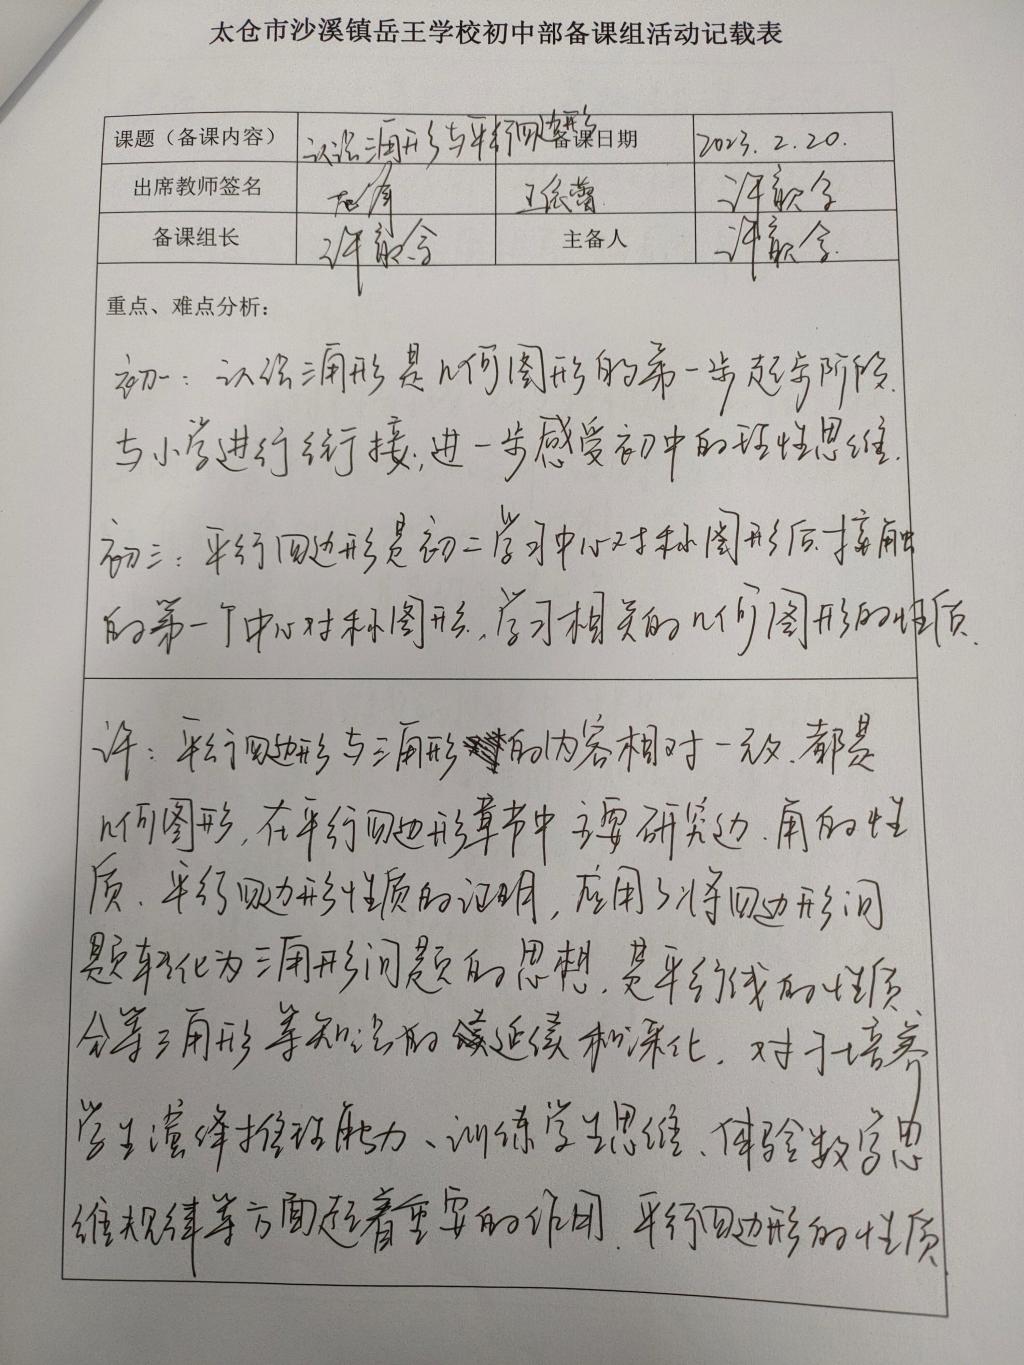 太仓市沙溪镇岳王学校初中部备课组活动记载表
课题（备课内容） 认识三角形与平行四边形 备课日期 2023.2.20.
出席教师签名 许
备课组长 许 主备人 许
重点、难点分析：
初一：认识三角形是几何图形的第一步起步阶段.
与小学进行衔接，进一步感受初中的理性思维.
初二：平行四边形是初二学习中心对称图形后接触
的第一个中心对称图形，学习相关的几何图形的性质.
许：平行四边形与三角形的内容相对一致.都是
几何图形，在平行四边形章节中主要研究边、角的性
质、平行四边形性质的证明，应用了将四边形问
题转化为三角形问题的思想，是平行线的性质
全等三角形等知识的延续和深化. 对于培养
学生演绎推理能力、训练学生思维、体验数学思
维规律等方面起着重要的作用.平行四边形的性质